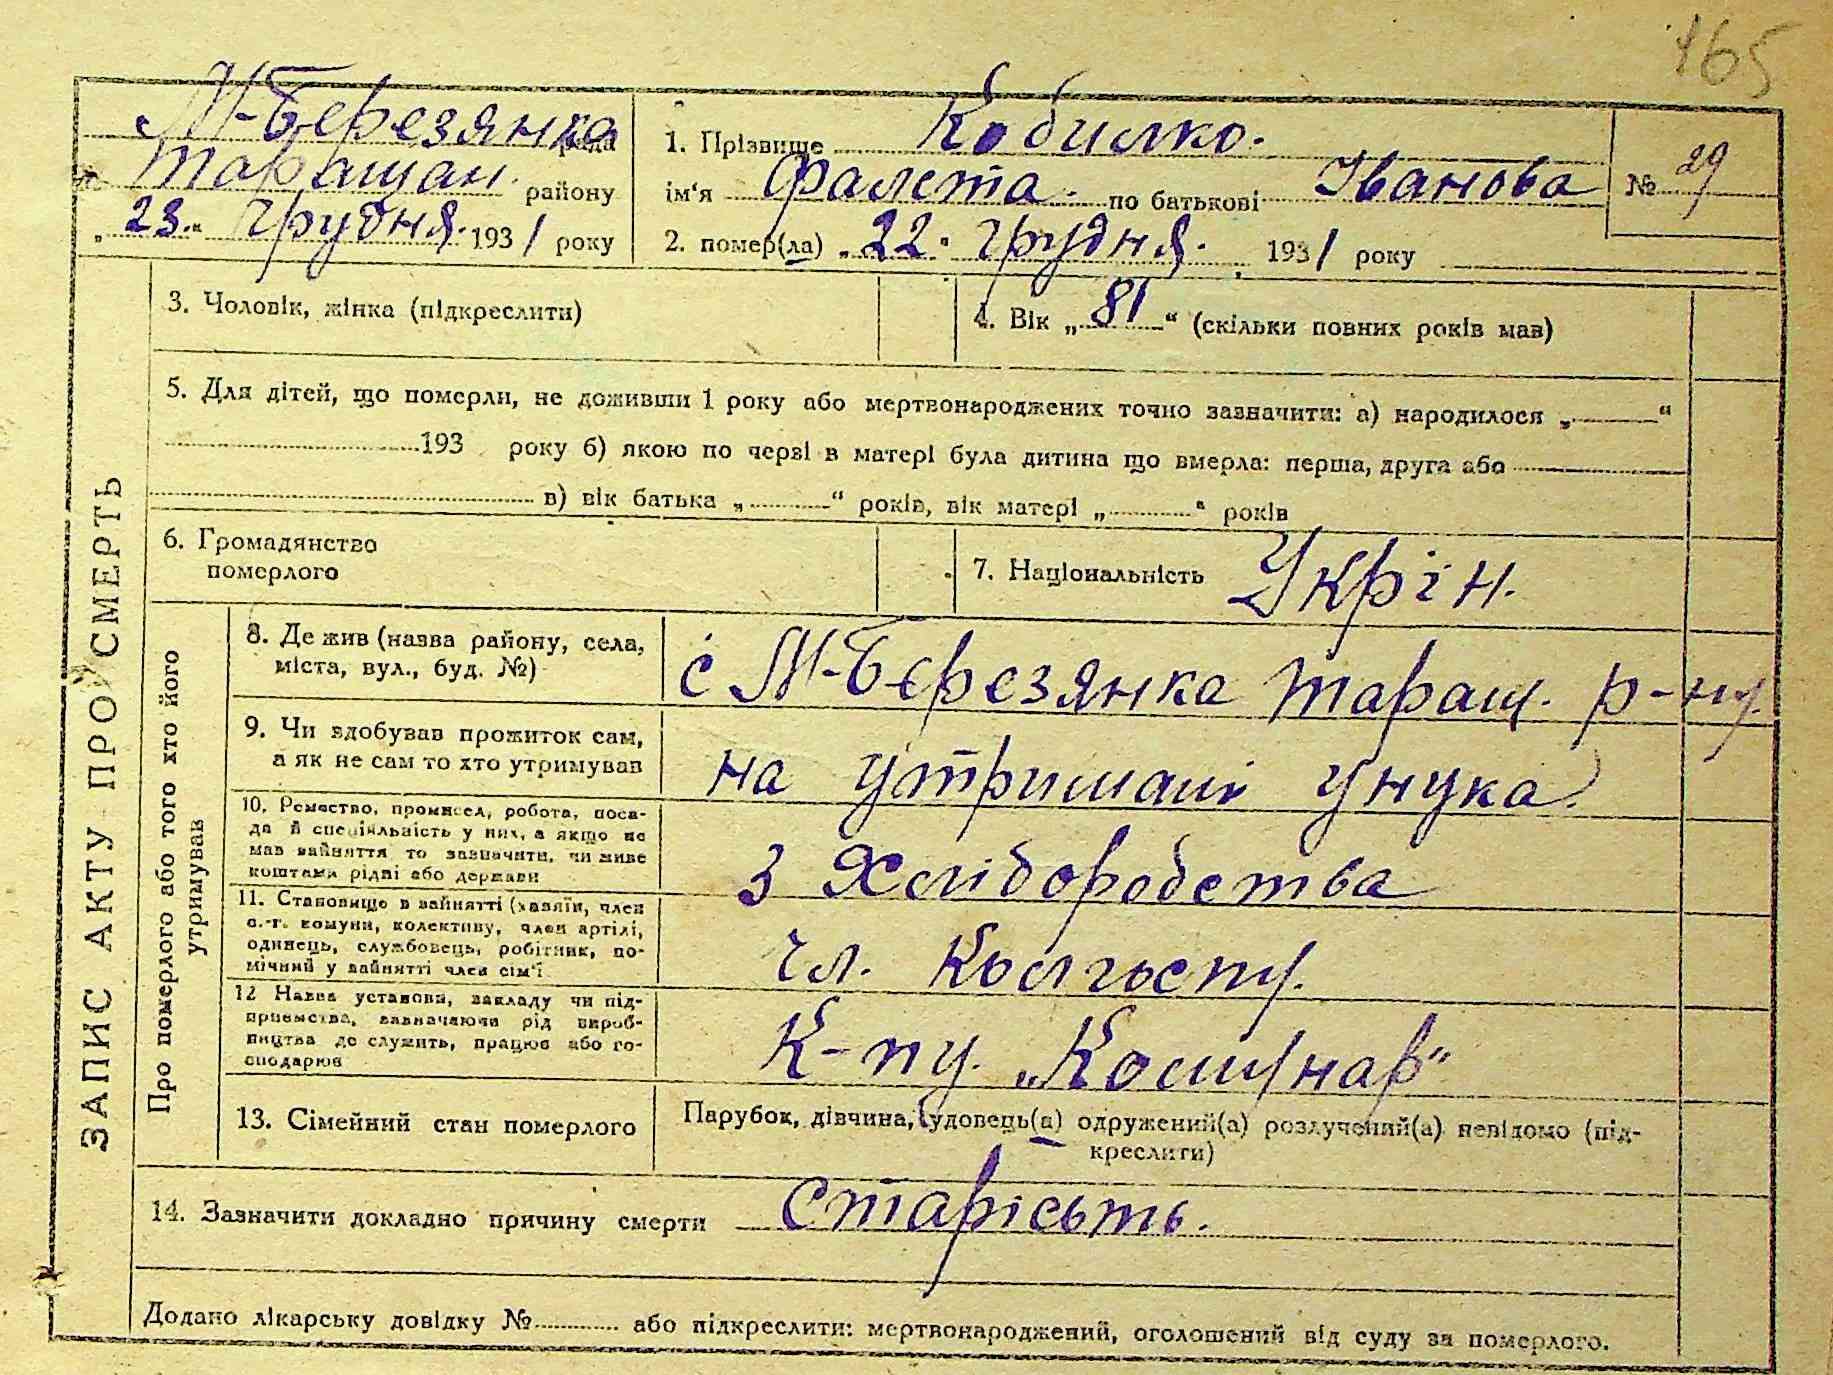 165
М-Березянка рада
Таращан. району
„23“ грудня. 1931 року
1. Прізвище Кобилко.
ім'я Фалєта. по батькові Іванова
2. помер(ла) „22“ грудня. 1931 року
№ 29
3. Чоловік, жінка (підкреслити)
4. Вік „81“ (скільки повних років мав)
5. Для дітей, що померли, не доживши 1 року або мертвонароджених точно зазначити: а) народилося „ “
193 року б) якою по черзі в матері була дитина що вмерла: перша, друга або
в) вік батька „ “ років, вік матері „ “ років
6. Громадянство
померлого
7. Національність Укрін.
ЗАПИС АКТУ ПРО СМЕРТЬ
Про померлого або того хто його
утримував
8. Де жив (назва району, села,
міста, вул., буд. №)
с М-Березянка Таращ. р-ну.
9. Чи здобував прожиток сам,
а як не сам то хто утримував
на утримані унука.
10. Ремество, промисел, робота, поса-
да й спеціяльність у них, а якщо не
мав зайняття то зазначити, чи живе
коштами рідні або держави
З Хліборобства
11. Становище в зайнятті (хазяїн, член
с.-г. комуни, колективу, член артілі,
одинець, службовець, робітник, по-
мічний у зайнятті член сім'ї
чл. Колгоспу.
12 Назва установи, закладу чи під-
приємства, зазначаючи рід вироб-
ництва де служить, працює або го-
сподарює
К-пу. „Комунар"
13. Сімейний стан померлого
Парубок, дівчина, удовець(а) одружений(а) розлучений(а) невідомо (під-
креслити)
14. Зазначити докладно причину смерти Старісьть.
Додано лікарську довідку № або підкреслити: мертвонароджений, оголошений від суду за померлого.